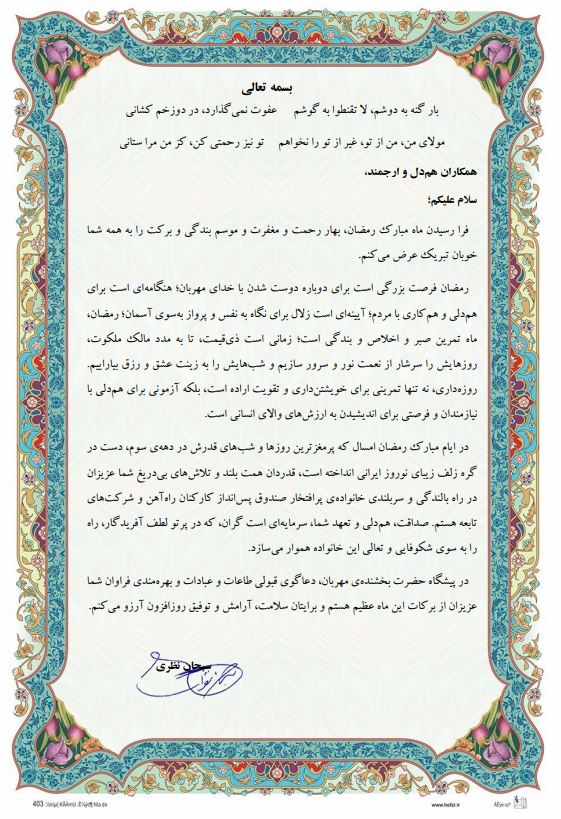 بسمه تعالی
بار گنه به دوشم، لا تقنطوا به گوشم    عفوت نمی‌گذارد، در دوزخم کشانی
مولای من، من از تو، غیر از تو را نخواهم    تو نیز رحمتی کن، کز من مرا ستانی
همکاران هم‌دل و ارجمند،
سلام علیکم؛
فرا رسیدن ماه مبارک رمضان، بهار رحمت و مغفرت و موسم بندگی و برکت را به همه شما
خوبان تبریک عرض می‌کنم.
رمضان فرصت بزرگی است برای دوباره دوست شدن با خدای مهربان؛ هنگامه‌ای است برای
هم‌دلی و هم‌کاری با مردم؛ آیینه‌ای است زلال برای نگاه به نفس و پرواز به‌سوی آسمان؛ رمضان،
ماه تمرین صبر و اخلاص و بندگی است؛ زمانی است ذی‌قیمت، تا به مدد مالک ملکوت،
روزهایش را سرشار از نعمت نور و سرور سازیم و شب‌هایش را به زینت عشق و رزق بیاراییم.
روزه‌داری، نه تنها تمرینی برای خویشتن‌داری و تقویت اراده است، بلکه آزمونی برای هم‌دلی با
نیازمندان و فرصتی برای اندیشیدن به ارزش‌های والای انسانی است.
در ایام مبارک رمضان امسال که پرمغزترین روزها و شب‌های قدرش در دهه‌ی سوم، دست در
گره زلف زیبای نوروز ایرانی انداخته است، قدردان همت بلند و تلاش‌های بی‌دریغ شما عزیزان
در راه بالندگی و سربلندی خانواده‌ی پرافتخار صندوق پس‌انداز کارکنان راه‌آهن و شرکت‌های
تابعه هستم. صداقت، هم‌دلی و تعهد شما، سرمایه‌ای است گران، که در پرتو لطف آفریدگار، راه
را به سوی شکوفایی و تعالی این خانواده هموار می‌سازد.
در پیشگاه حضرت بخشنده‌ی مهربان، دعاگوی قبولی طاعات و عبادات و بهره‌مندی فراوان شما
عزیزان از برکات این ماه عظیم هستم و برایتان سلامت، آرامش و توفیق روزافزون آرزو می‌کنم.
سبحان نظری
403
www.hefzi.ir